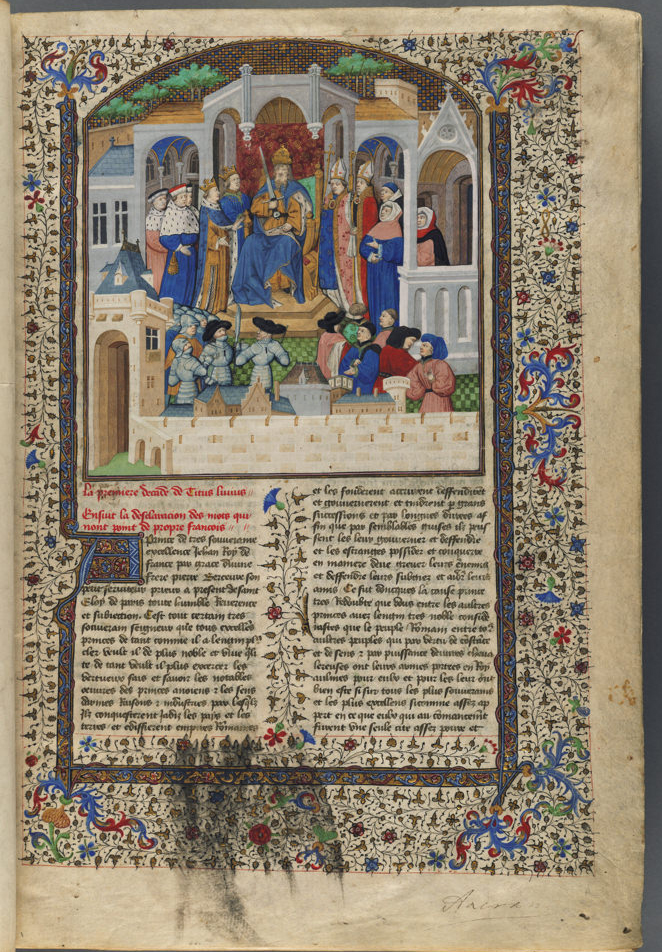 La premiere decade de Titus livius
Ensuit la desclaracion des mots qui
nont point de propre francois
Prince de tres souveraine
excellence Jehan Roy de
france par grace divine
frere pierre Berceure son
petit serviteur prieur a present de saint
Eloy de paris toute humble Reverence
et subiection. Cest tout certain tres
souverain seigneur que tous excellens
princes de tant comme il a lengin plus
cler veult il de plus noble et vive
te de tant veult il plus encercer les
vertueux fais et savoir les notables
oeuvres des princes anciens et les sens
darmes Raisons et industries par lesqlz
Ilz conquesterent Jadis les pays et les
terres et edifierent empires Romaines
et les fonderent acrurent deffendirent
et gouvernerent et tindrent p grans
successions et par longues durees af
fin que par semblables guises ilz peus
sent les leur gouverner et deffendre
et les estranges posseder et conquerre
en maniere dene grever leurs ennemis
et deffendre leurs subgez et aider leurs
amis. Ce fut doncques la cause prince
tres Redoubte que vous entre les aultres
princes avez lengin tres noble consid
aultres peuples qui par vertu de constance
et de sens et par puissance divines cheva
lereuses ont leurs armes portees en Roy
aulmes pour eulx et pour les leur ont
bien este si sur tous les plus souverains
et les plus excellens sicomme assez ap
pert en ce que eulx qui au commencement
furent dune seule cite assez povre et